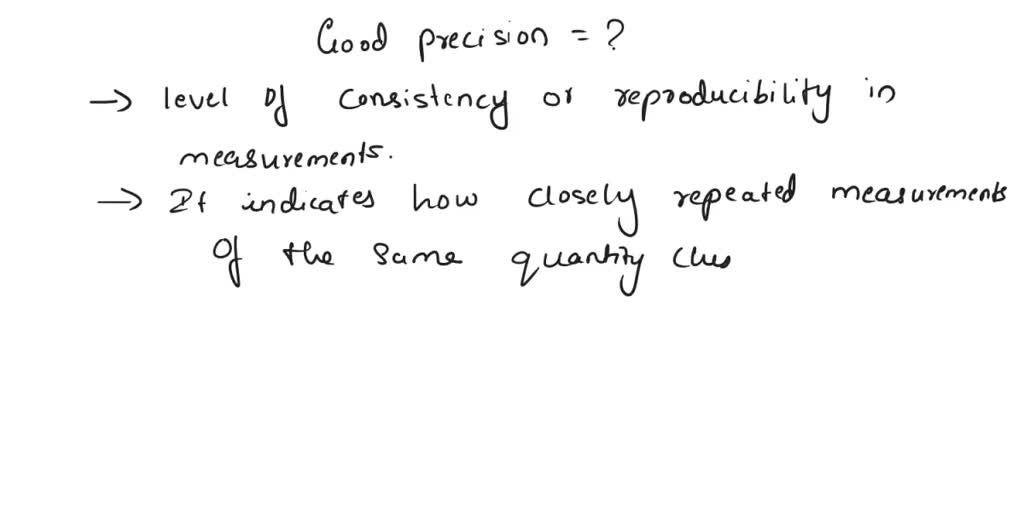 Good precision = ?
→ level of consistency or reproducibility in
measurements.
→ It indicates how closely repeated measurements
of the same quantity clus